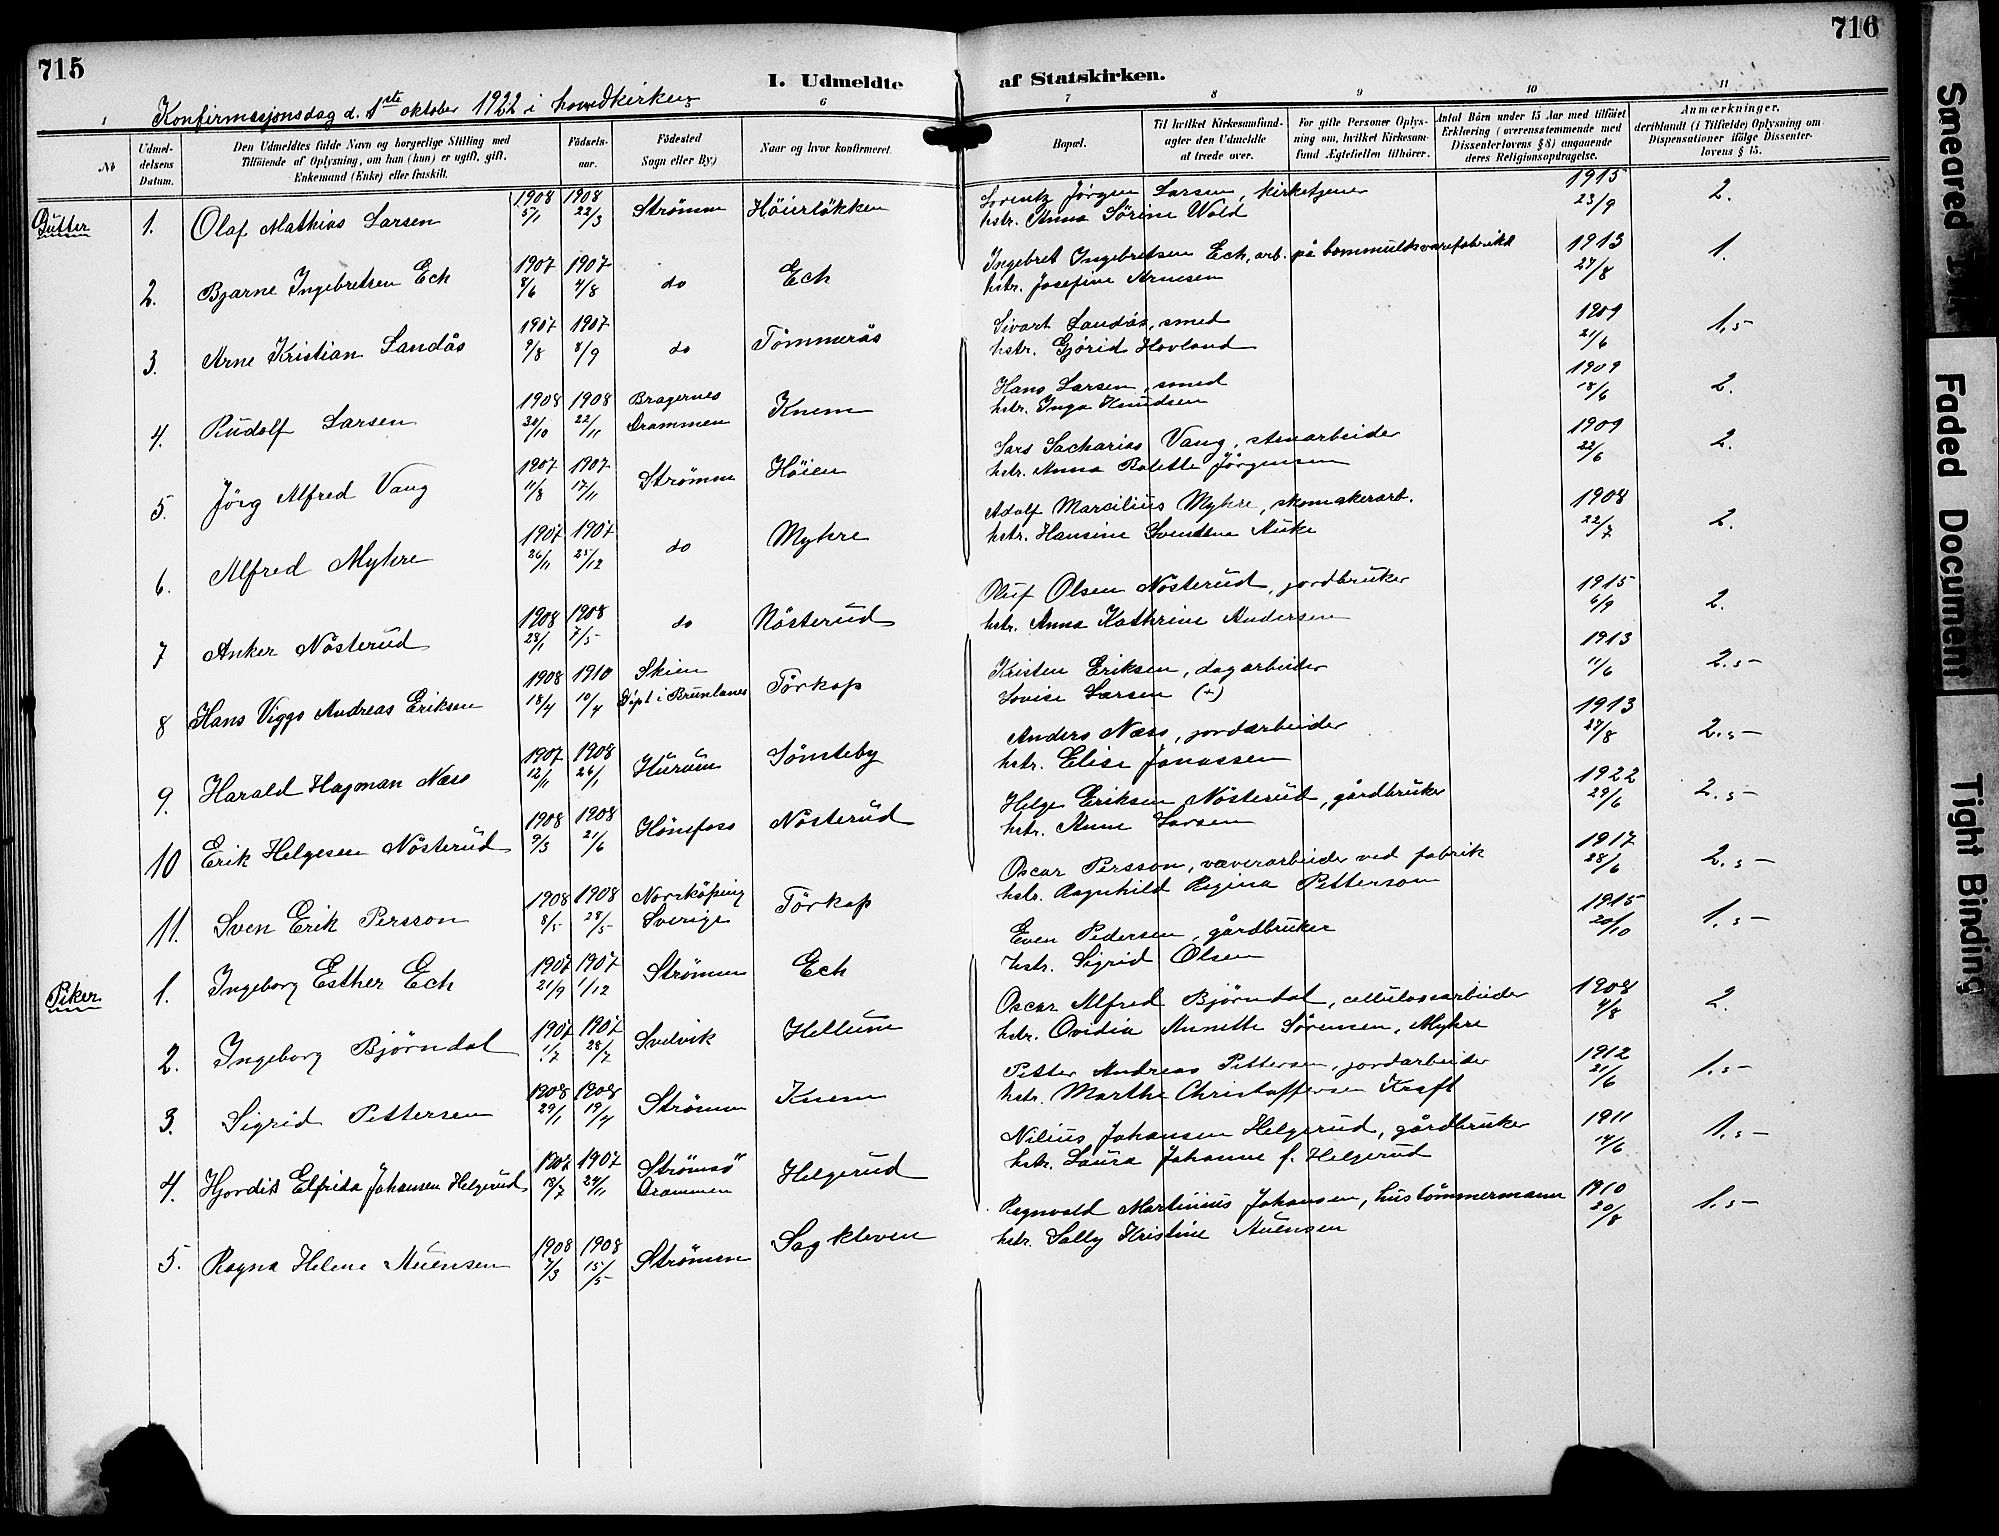 715
716
I. Udmeldte af Statskirken.
Konfirmasjonsdag d. 1ste oktober 1922 i hovedkirken
1
6
7
8
9
10
11
No
Udmel-
delsens
Datum.
Den Udmeldtes fulde Navn og borgerlige Stilling med
Tilföiende af Oplysning, om han (hun) er ugift, gift,
Enkemand (Enke) eller fraskilt.
Födsels-
aar.
Födested
Sogn eller By)
Naar og hvor konfirmeret
Bopæl.
Til hvilket Kirkesamfund-
agter den Udmeldte
at træde over.
For gifte Personer Oplys-
ning om, hvilket Kirkesam-
fund Ægtefællen tilhörer.
Antal Börn under 15 Aar med tilföiet
Erklæring (overensstemmende med
Dissenterlovens § 8) angaaende
deres Religionsopdragelse.
Anmærkninger,
deriblandt (i Tilfælde) Oplysning om
Dispensationer ifölge Dissenter-
lovens § 15.
Gutter
1. Olaf Mathias Larsen 1908 5/1 1908 22/3 Strömm Höierlökken
Lorentz Jörgen Larsen, kirketjener 1915 23/9 2.
hstr. Anna Sörine Wold
2. Bjarne Ingebretsen Eck 1907 8/6 1907 4/8 do Eck
Ingebret Ingebretsen Eck, arb. på bommuldsvarefabrikk 1913 27/8 1.
hstr. Josefine Arnesen
3. Arne Kristian Landås 1907 9/8 1907 8/9 do Tömmerås
Sivart Landås, smed 1909 21/6 1.5
hstr. Gjörid Hovland
4. Rudolf Larsen 1908 30/10 1908 22/11 Bragernes Drammen Knem
Hans Larsen, smed 1909 18/6 2.
hstr. Inga Knudsen
5. Jörg Alfred Vang 1907 11/8 1907 17/11 Strömm Höien
Lars Sacharias Vang, stenarbeider 1909 22/6 2.
hstr. Anna Bolette Jörgensen
6. Alfred Myhre 1907 26/11 1907 25/12 do Myhre
Adolf Marcilius Myhre, skomakerarb. 1908 22/7 2.
hstr. Hansine Svendsen Auke
7 Anker Nösterud 1908 28/1 1908 7/5 do Nösterud
Oluf Olsen Nösterud, jordbruker 1915 6/9 2.
hstr. Anna Kathrine Andersen
8 Hans Viggo Andreas Eriksen 1908 18/4 1910 10/4 Skien Döpt i Brunlanes Törkop
Kristen Eriksen, dagarbeider 1913 11/6 2.5
Lovise Larsen (+)
9. Harald Hagman Næss 1907 12/11 1908 26/1 Hurum Sönsteby
Anders Næss, jordarbeider 1913 27/8 2.5
hstr. Elise Jonassen
10 Erik Helgesen Nösterud 1908 9/3 1908 21/6 Hönefoss Nösterud
Helge Eriksen Nösterud, gårdbruker 1922 29/6 2.5
hstr. Anne Larsen
11. Sven Erik Persson 1908 8/5 1908 28/5 Norrköping Sverige Törkop
Oscar Persson, væverarbeider ved fabrik 1917 28/6 2.5
hstr. Ragnhild Regina Petterson
Piker
1. Ingeborg Esther Eck 1907 21/9 1907 1/12 Strömm Eck
Even Pedersen, gårdbruker 1915 20/10 1.5
hstr. Sigrid Olsen
2. Ingeborg Björndal 1907 1/7 1907 28/7 Svelvik Hellum
Oscar Alfred Björndal, cellulosearbeider 1908 4/8 2.
hstr. Ovidia Annette Sörensen, Myhre
3. Sigrid Pettersen 1908 29/1 1908 19/4 Strömm Knem
Petter Andreas Pettersen, jordarbeider 1912 21/6 1.5
hstr. Marthe Christoffersen Kraft
4. Hjordis Elfrida Johansen Helgerud 1907 18/7 1907 24/11 Strömsö Drammen Helgerud
Nilius Johansen Helgerud, gårdbruker 1911 14/6 1.5
hstr. Laura Johanne f. Helgerud
5. Ragna Helene Auensen 1908 7/3 1908 15/5 Strömm Sagkleven
Ragnvald Martinius Johansen, hustömmermann 1910 20/8 1.5
hstr. Sally Kristine Auensen
Smeared Ink
Faded Document
Tight Binding